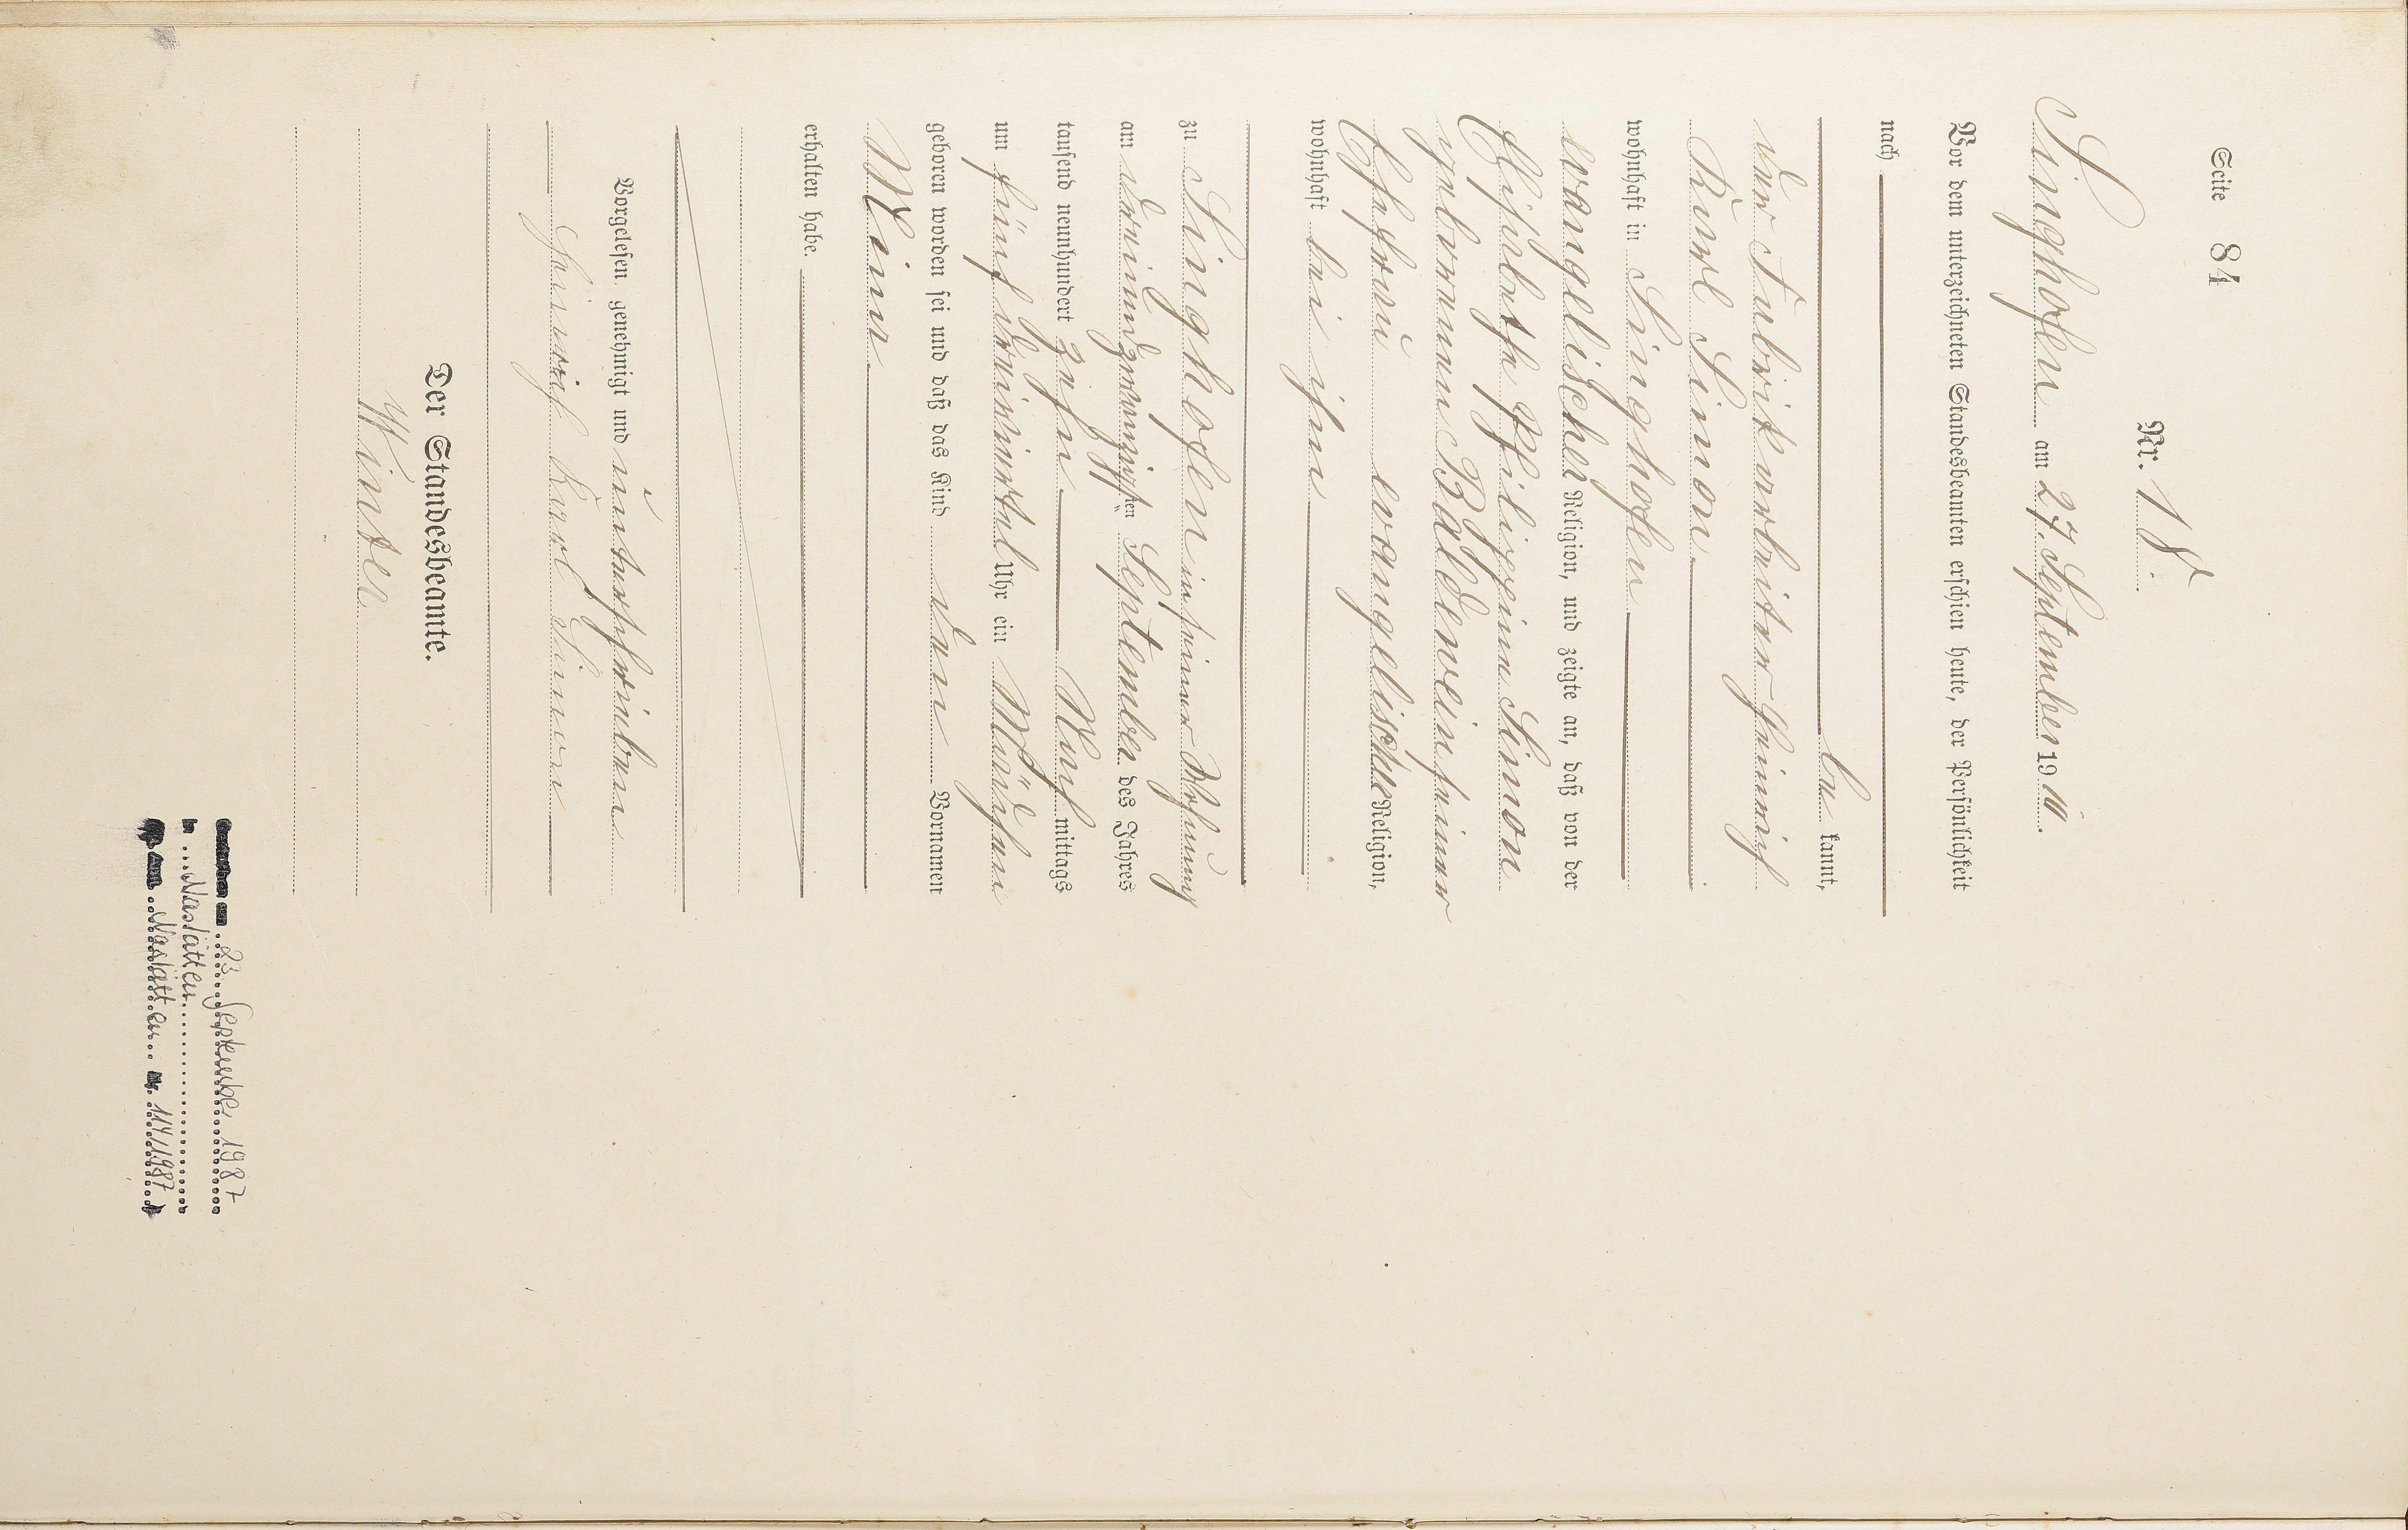 Seite 84
Nr. 18.
Singhofen am 27. September 1910.
Vor dem unterzeichneten Standesbeamten erschien heute, der Persönlichkeit
nach
be kannt,
der Fabrikarbeiter Heinrich
Karl Simon
wohnhaft in Singhofen
evangelischer Religion, und zeigte an, daß von der
Elisabethe Philippine Simon
geborenen Baldenwein seiner
Ehefrau evangelische Religion,
wohnhaft bei ihm
zu Singhofen in seiner Wohnung
am dreiundzwanzigsten September des Jahres
tausend neunhundert zehn Nach mittags
um fünf dreiviertel Uhr ein Mädchen
geboren worden sei und daß das Kind den Vornamen
Mina
erhalten habe.
Vorgelesen, genehmigt und unterschrieben
Heinrich Karl Simon
Der Standesbeamte.
Winter
23. September 1987
in Nastätten
Nastätten Nr. 114/1987